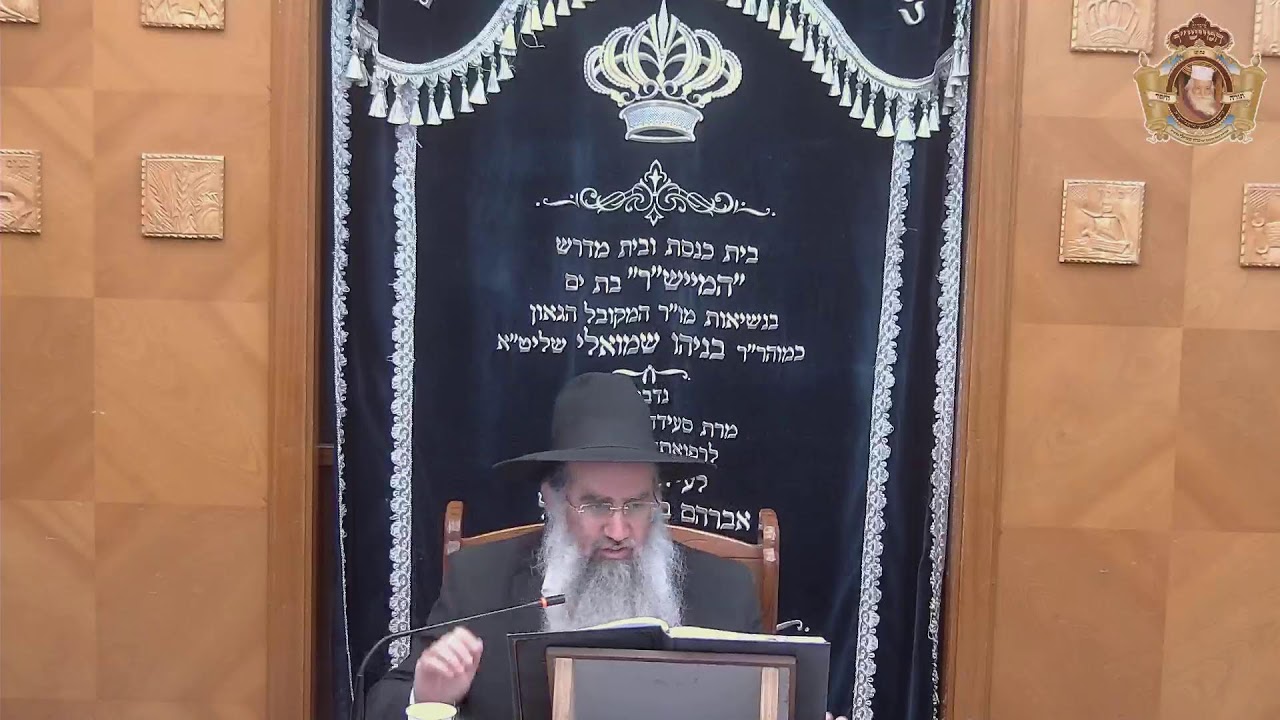 בית כנסת ובית מדרש
"המייש"ר" בת ים
בנשיאות מו"ר המקובל הגאון
כמוהר"ר בניהו שמואלי שליט"א
מרת סעידה
אברהם